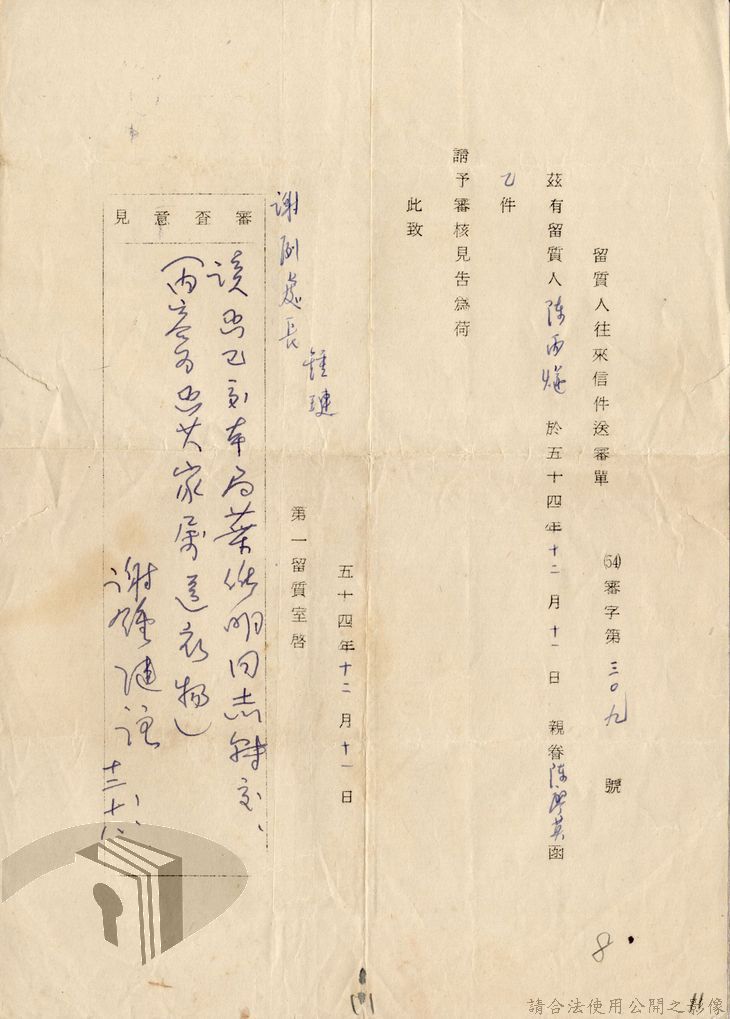 留質人往來信件送審單 (54)審字第三〇九號
茲有留質人陳 於五十四年十二月十一日 親眷陳 英函
乙件
請予審核見告爲荷
此致
謝副處長 鍾璉
五十四年十二月十一日
第一留質室啓
審查意見
該函已交本局葉 明同志轉交、
(內容為函其家屬送衣物)
謝鍾璉 十二、十八、
8
11
請合法使用公開之影像